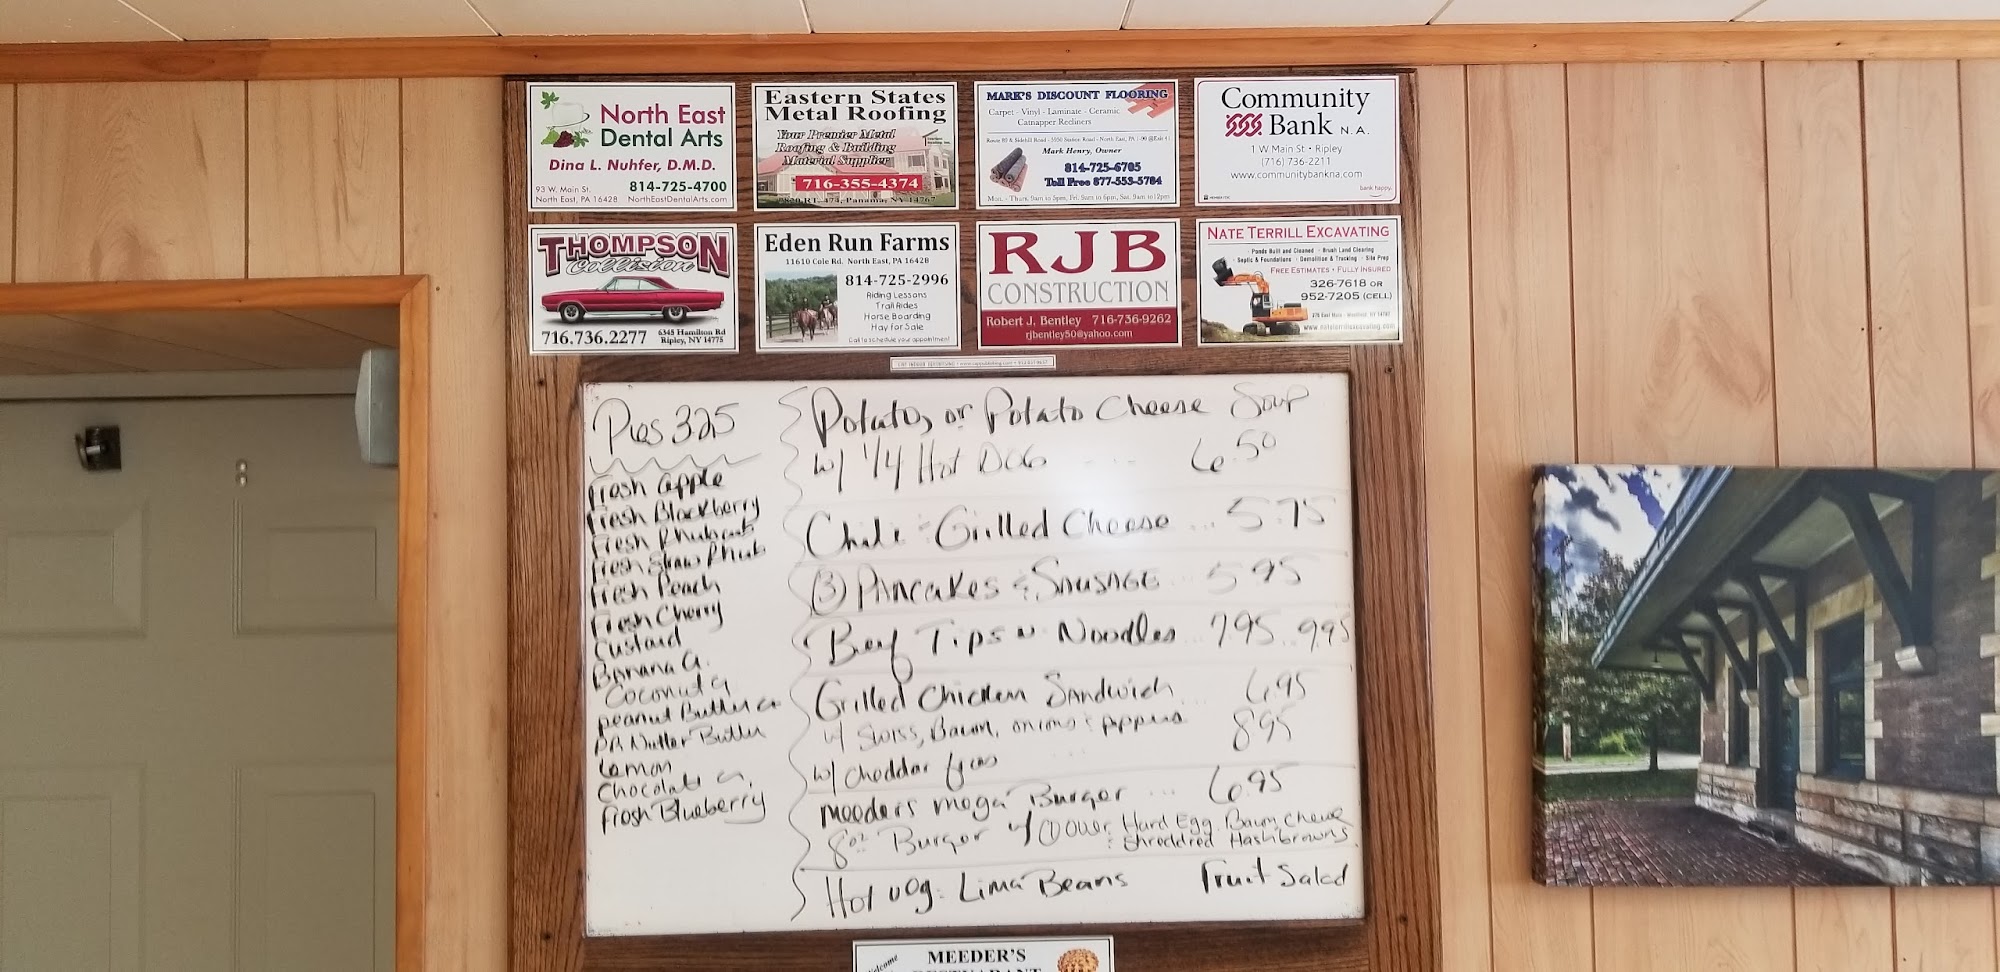 North East
Dental Arts
Dina L. Nuhfer, D.M.D.
93 W. Main St. 814-725-4700
North East, PA 16428 NorthEastDentalArts.com
Eastern States
Metal Roofing
Your Premier Metal
Roofing & Building
Material Supplier
716-355-4374
RT. 474, Panama, NY 14767
MARK'S DISCOUNT FLOORING
Carpet - Vinyl - Laminate - Ceramic
Catnapper Recliners
Mark Henry, Owner
814-725-6705
Toll Free 877-553-5784
Mon. - Thurs. 9am to 5pm, Fri. 9am to 6pm, Sat. 9am to 12pm
Community
Bank N.A.
1 W Main St • Ripley
(716) 736-2211
www.communitybankna.com
bank happy.
THOMPSON
Collision
716.736.2277 6345 Hamilton Rd
Ripley, NY 14775
Eden Run Farms
11610 Cole Rd. North East, PA 16428
814-725-2996
Riding Lessons
Trail Rides
Horse Boarding
Hay for Sale
Call to schedule your appointment
RJB
CONSTRUCTION
Robert J. Bentley 716-736-9262
rjbentley50@yahoo.com
NATE TERRILL EXCAVATING
Ponds Built and Cleaned · Brush Land Clearing
· Septic & Foundations · Demolition & Trucking · Site Prep
FREE ESTIMATES • FULLY INSURED
326-7618 OR
952-7205 (CELL)
www.nateterrillexcavating.com
Pies 3.25
Fresh apple
Fresh Blackberry
Fresh Rhubarb
Fresh Straw Rhub
Fresh Peach
Fresh Cherry
Custard
Banana G.
Coconut G
peanut Butter G
PB Nutter Butter
Lemon
Chocolate G.
Fresh Blueberry
Potato, or Potato Cheese Soup
w/ 1/4 Hot Dog 6.50
Chili & Grilled Cheese ... 5.75
(3) Pancakes & Sausage .. 5.95
Beef Tips n Noodles .. 7.95 .. 9.95
Grilled Chicken Sandwich 6.95
w/ Swiss, Bacon, onions & peppers
w/ cheddar fries ... 8.95
Meeders mega Burger ... 6.95
8oz Burger w/ (1) Over Hard Egg, Bacon, Cheese
& Shreddred Hashbrowns
Hot veg: Lima Beans Fruit Salad
Welcome
MEEDER'S
RESTAURANT